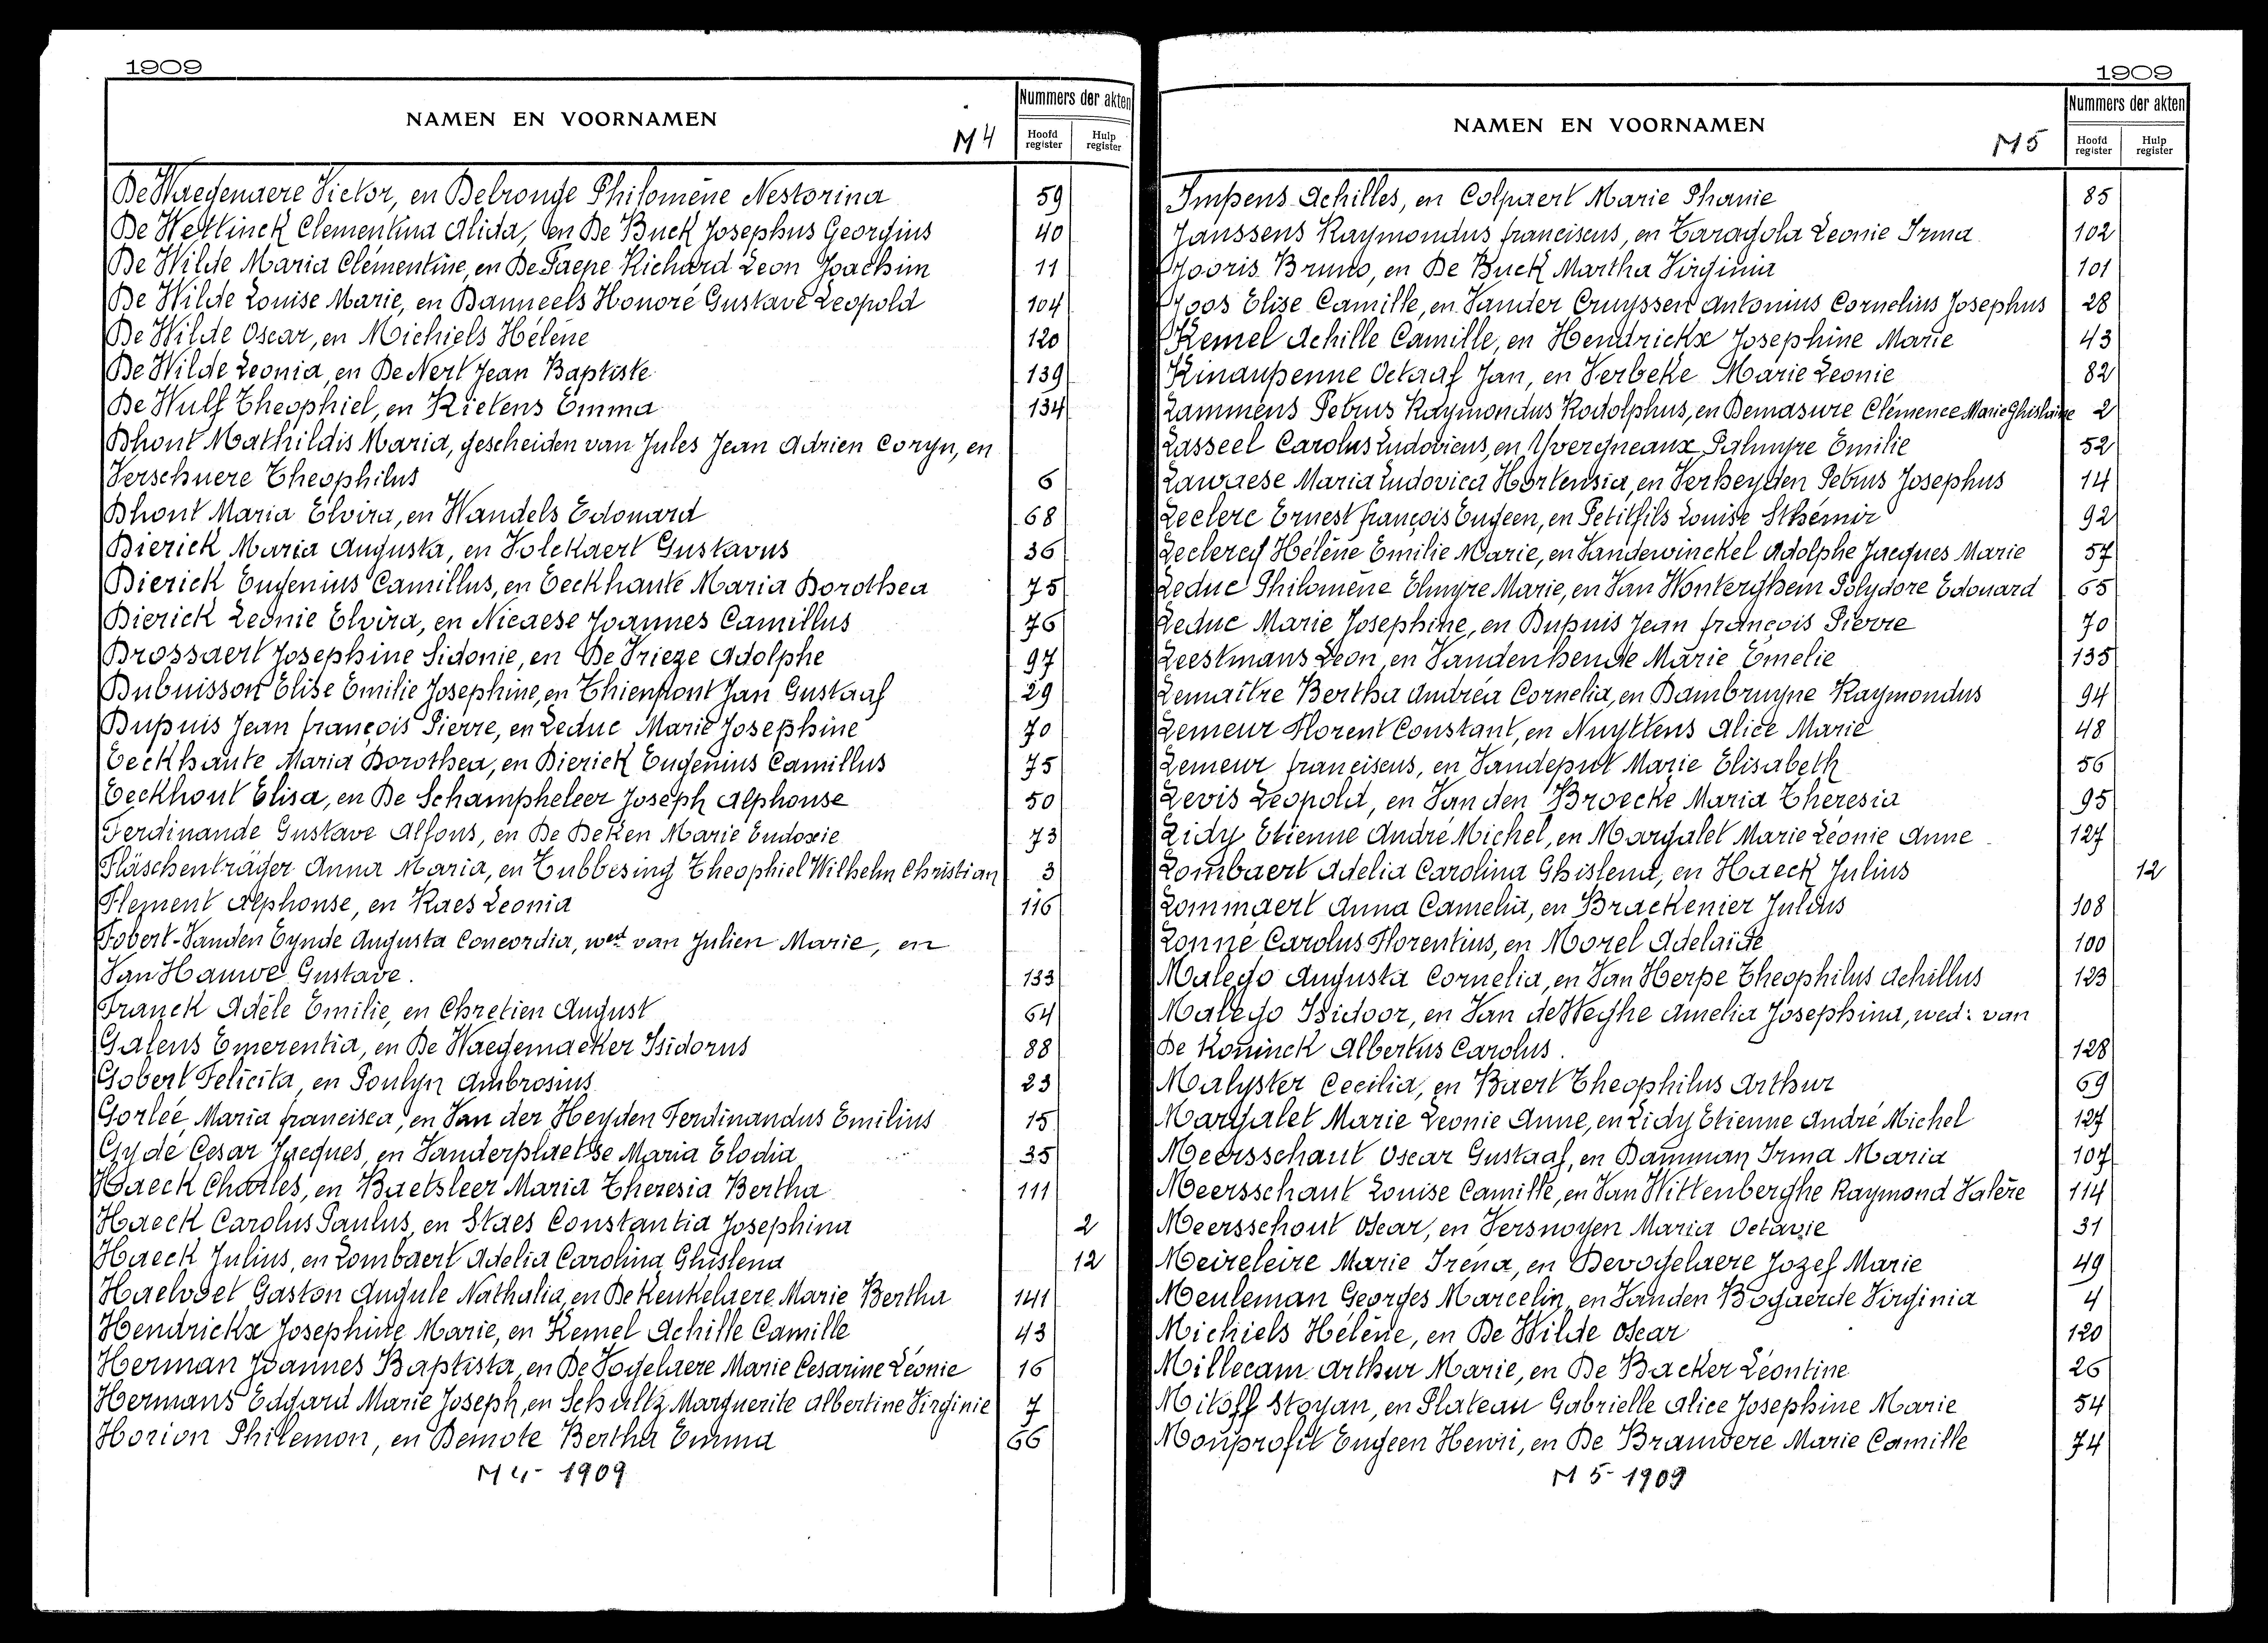 1909
NAMEN EN VOORNAMEN
M 4
Nummers der akten
Hoofd register
Hulp register
De Waegenaere Victor, en Delronge Philomène Nestorina 59
De Wettinck Clementina Alida, en De Buck Josephus Georgius 40
De Wilde Maria Clémentine, en De Paepe Richard Leon Joachim 11
De Wilde Louise Marie, en Danneels Honoré Gustave Leopold 104
De Wilde Oscar, en Michiels Hélène 120
De Wilde Leonia, en De Nert Jean Baptiste 139
De Wulf Theophiel, en Rietens Emma 134
Dhont Mathildis Maria, gescheiden van Jules Jean Adrien Coryn, en
Verschuere Theophilus 6
Dhont Maria Elvira, en Wandels Edouard 68
Dierick Maria Augusta, en Volckaert Gustavus 36
Dierick Eugenius Camillus, en Eeckhaute Maria Dorothea 75
Dierick Leonie Elvira, en Nicaese Joannes Camillus 76
Drossaert Josephine Sidonie, en De Vrieze Adolphe 97
Dubuisson Elise Emilie Josephine, en Thienpont Jan Gustaaf 29
Dupuis Jean françois Pierre, en Leduc Marie Josephine 70
Eeckhaute Maria Dorothea, en Dierick Eugenius Camillus 75
Eeckhout Elisa, en De Schampheleer Joseph Alphonse 50
Ferdinande Gustave Alfons, en De Deken Marie Eudoxie 73
Fläschenträger Anna Maria, en Tubbesing Theophiel Wilhelm Christian 3
Flement Alphonse, en Raes Leonia 116
Fobert-Vanden Eynde Augusta Concordia, wed van Julien Marie, en
Van Hauwe Gustave. 133
Franck Adèle Emilie, en Chretien August 64
Galens Emerentia, en De Waegemaeker Isidorus 88
Gobert Felicita, en Poulyn Ambrosius 23
Gorlée Maria francisca, en Van der Heyden Ferdinandus Emilius 15
Gydé Cesar Jacques, en Vanderplaetse Maria Elodia 35
Haeck Charles, en Baetsleer Maria Theresia Bertha 111
Haeck Carolus Paulus, en Staes Constantia Josephina 2
Haeck Julius, en Lombaert Adelia Carolina Ghislena 12
Haelvoet Gaston Augule Nathalia, en De Keukelaere Marie Bertha 141
Hendrickx Josephine Marie, en Kemel Achille Camille 43
Herman Joannes Baptista, en De Vogelaere Marie Cesarine Léonie 16
Hermans Edgard Marie Joseph, en Schultz Marguerite Albertine Virginie 7
Horion Philemon, en Demote Bertha Emma 66
M 4 - 1909
1909
NAMEN EN VOORNAMEN
M 5
Nummers der akten
Hoofd register
Hulp register
Impens Achilles, en Colpaert Marie Phanie 85
Janssens Raymondus franciscus, en Taragola Leonie Irma 102
Jooris Bruno, en De Buck Martha Virginia 101
Joos Elise Camille, en Vander Cruyssen Antonius Cornelius Josephus 28
Kemel Achille Camille, en Hendrickx Josephine Marie 43
Kinaupenne Octaaf Jan, en Verbeke Marie Leonie 82
Lammens Petrus Raymondus Rodolphus, en Demasure Clémence Marie Ghislaine 2
Lasseel Carolus Ludovicus, en Yvergneaux Palmyre Emilie 52
Lawaese Maria Ludovica Hortensia, en Verheyden Petrus Josephus 14
Leclerc Ernest françois Eugeen, en Petitfils Louise Sthémir 92
Leclercq Hélène Emilie Marie, en Vandewinckel Adolphe Jacques Marie 57
Leduc Philomène Elmyre Marie, en Van Wonterghem Polydore Edouard 65
Leduc Marie Josephine, en Dupuis Jean françois Pierre 70
Leestmans Leon, en Vandenhende Marie Emelie 135
Lemaître Bertha Andréa Cornelia, en Dambruyne Raymondus 94
Lemeur Florent Constant, en Nuyttens Alice Marie 48
Lemeur franciscus, en Vandeput Marie Elisabeth 56
Levis Leopold, en Van den Broecke Maria Theresia 95
Lidy Etienne André Michel, en Margalet Marie Léonie Anne 127
Lombaert Adelia Carolina Ghislena, en Haeck Julius 12
Lommaert Anna Camelia, en Brackenier Julius 108
Lonné Carolus Florentius, en Morel Adelaïde 100
Malego Augusta Cornelia, en Van Herpe Theophilus Achillus 123
Malego Isidoor, en Van de Weghe Amelia Josephina, wed: van
De Koninck Albertus Carolus. 128
Malyster Cecilia, en Baert Theophilus Arthur 69
Margalet Marie Leonie Anne, en Lidy Etienne André Michel 127
Meersschaut Oscar Gustaaf, en Damman Irma Maria 107
Meersschaut Louise Camille, en Van Wittenberghe Raymond Valère 114
Meersschout Oscar, en Versnoyen Maria Octavie 31
Meireleire Marie Iréna, en Devogelaere Jozef Marie 49
Meuleman Georges Marcelin, en Vanden Bogaerde Virginia 4
Michiels Hélène, en De Wilde Oscar 120
Millecam Arthur Marie, en De Backer Léontine 26
Mitoff Stoyan, en Plateau Gabrielle Alice Josephine Marie 54
Monprofit Eugeen Henri, en De Brauwere Marie Camille 74
M 5 - 1909